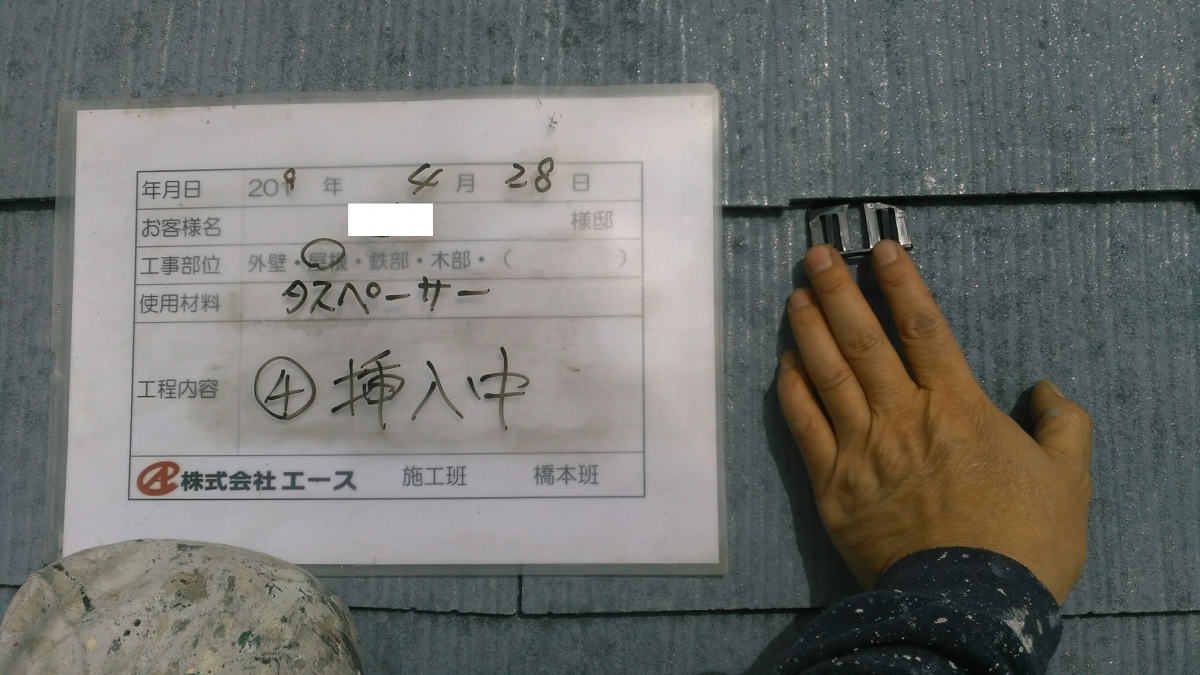 年月日 2019年 4月 28日
お客様名 様邸
工事部位 外壁・屋根・鉄部・木部・( )
使用材料 タスペーサー
工程内容 ④挿入中
株式会社エース 施工班 橋本班